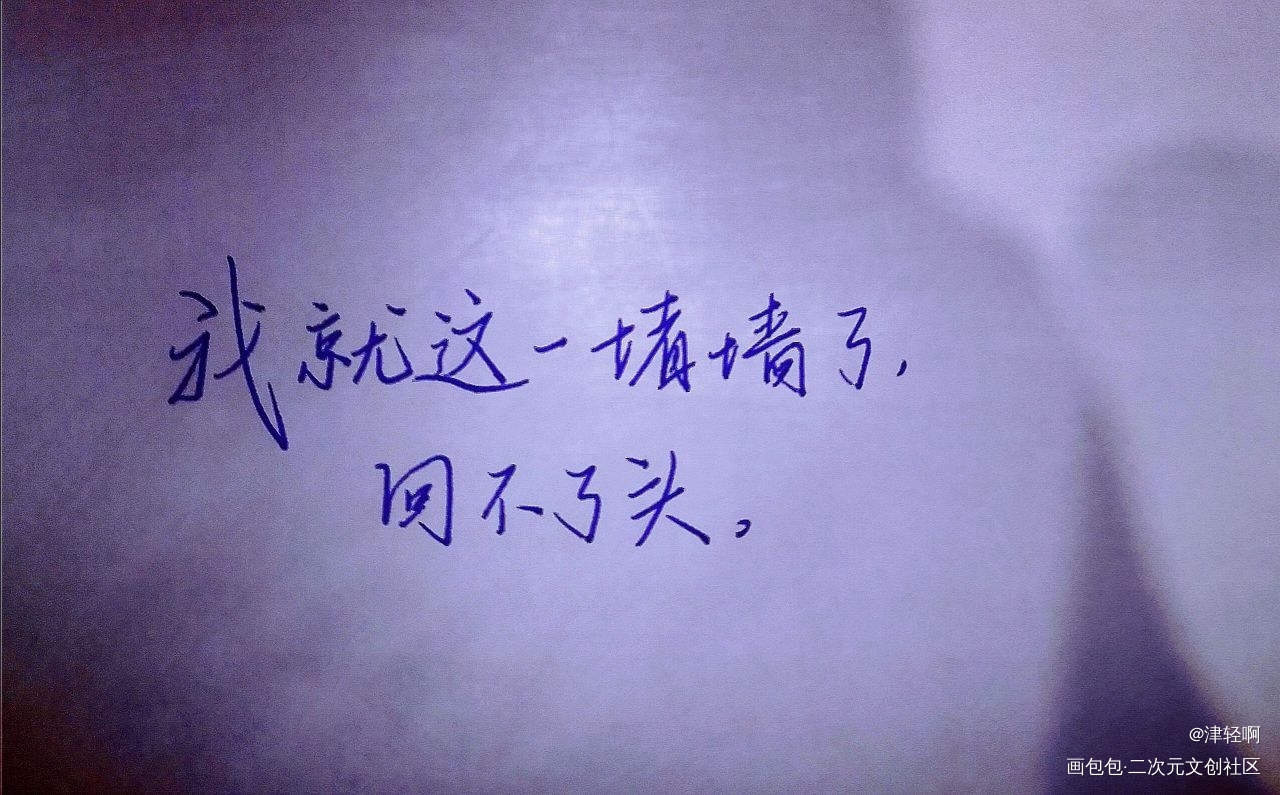 我就这一堵墙了，
回不了头。
@津轻啊
画包包·二次元文创社区